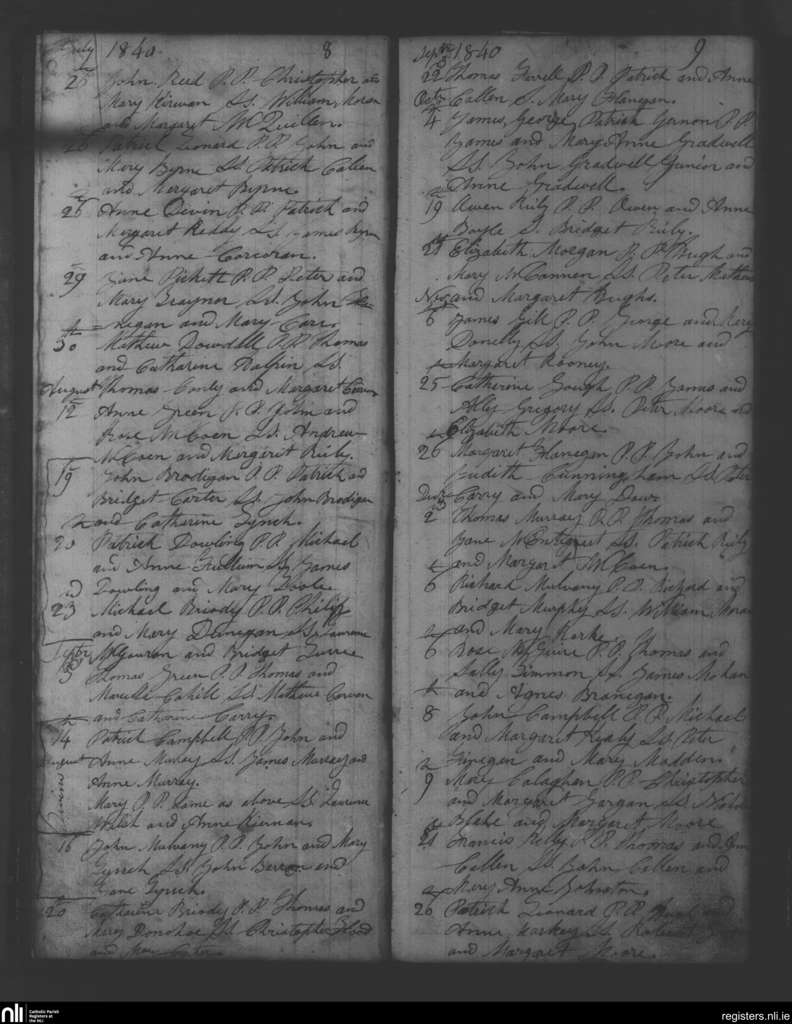 July 1840 8
25 John Reed P.P. Christopher and
Mary Kirwan SS. William Moran
and Margaret McQuillen.
26 Patrick Leonard P.P. John and
Mary Byrne SS. Patrick Callen
and Margaret Byrne.
26 Anne Devin P.P. Patrick and
Margaret Reddy SS. James Byrne
and Anne Corcoran.
29 Jane Pickett P.P. Peter and
Mary Traynor SS. John
negan and Mary Carr.
30 Mathew Dowdell P.P. Thomas
and Catharine Halpin SS.
August Thomas Conly and Margaret
12 Anne Green P.P. John and
Rose McCoen SS. Andrew
McCoen and Margaret Riely.
19 John Brodigan P.P. Patrick and
Bridget Carter SS. John Brodigan
and Catharine Lynch.
20 Patrick Dowling P.P. Michael
and Anne SS. James
Dowling and Mary Toole.
23 Michael Briody P.P. Philip
and Mary Dunegan SS. Laurence
Septbr McGauran and Bridget
5 Thomas Green P.P. Thomas and
Marcella Cahill SS. Mathew
and Catharine Carry.
14 Patrick Campbell P.P. John and
Anne Murray SS. James Murray and
Anne Murray.
Mary P.P. Same as above SS. Laurence
Welsh and Anne Kiernan.
16 John Mulvany P.P. John and Mary
Lynch SS. John and
Jane Lynch.
20 Catharine Briody P.P. Thomas and
Mary Donohoe SS. Christopher Flood
and Mary
Septr 1840 9
22 Thomas Farrell P.P. Patrick and Anne
Octr Callen S. Mary Flanegan.
4 James George Patrick Gernon P.P.
James and Mary Anne Gradwell
SS. John Gradwell Junior and
Anne Gradwell.
19 Owen Riely P.P. Owen and Anne
Boyle S. Bridget Riely.
21 Elizabeth Morgan P.P. Hugh and
Mary McCannen SS. Peter Mathews
Nov and Margaret Hughs.
6 James Gill P.P. George and Mary
Donelly SS. John Moore and
Margaret Rooney.
25 Catherine Gough P.P. James and
Alley Gregory SS. Peter Moore and
Elizabeth Moore.
26 Margaret Flanegan P.P. John and
Judith Cunningham SS. Peter
Decr Carry and Mary
2 Thomas Murray P.P. Thomas and
Jane McEntegert SS. Patrick Riely
and Margaret McCoen.
6 Richard Mulvany P.P. Richard and
Bridget Murphy SS. William Moran
and Mary Markey
6 Rose McGuire P.P. Thomas and
Sally Timmon SS. James Mohan
and Agnes Branegan.
8 John Campbell P.P. Michael
and Margaret Kealy SS. Peter
Finegan and Mary Madden.
9 Mary Calaghan P.P. Christopher
and Margaret Gargan SS.
Blake and Margaret Moore
Francis Kelly P.P. Thomas and Anne
Callen SS. John Callen and
Mary Anne Johnston.
20 Patrick Leonard P.P. and
Anne Markey SS.
and Margaret Moore.
nli
Catholic Parish
Registers at
the NLI
registers.nli.ie